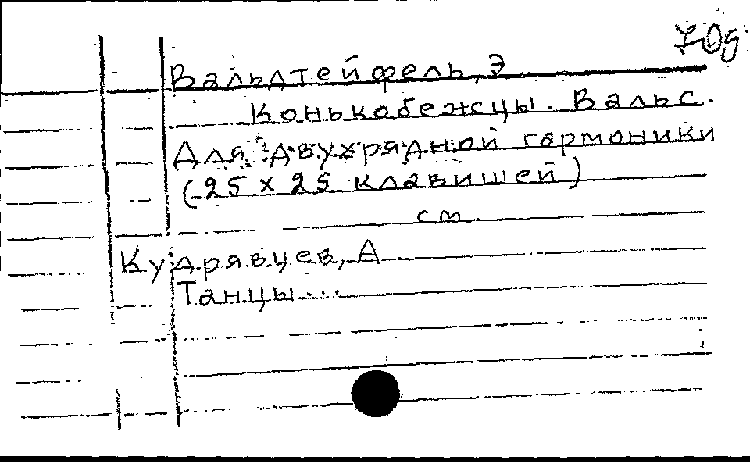 Вальдтейфель, Э
Конькобежцы. Вальс.
Для двухрядной гармоники
(25 х 25 клавишей)
см.
Кудрявцев, А
Танцы...